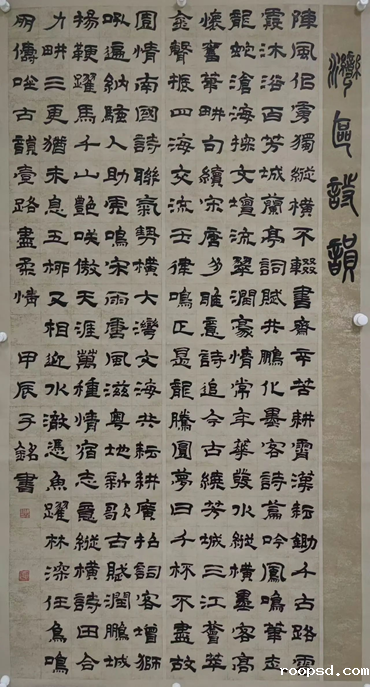 灣區詩韻
陳風侶雪獨縱橫不輟書齋辛苦耕霄漢耘鋤千古路雲
霞沐浴百芳城蘭亭詞賦共鵬化墨客詩篇吟鳳鳴筆走
龍蛇滄海探文壇流翠潤豪情常年華發水縱橫墨客高
懷奮筆耕句續宋唐多雅意詩追今古繞芳城三江薈萃
金聲振四海交流玉律鳴正是龍騰圓夢日千杯不盡故
園情南國詩聯氣勢橫大灣文海共耘耕廣招詞客增獅
吼遍納騷人助虎鳴宋雨唐風滋粵地新歌古賦潤鵬城
揚鞭躍馬千山艷笑傲天涯萬種情宿志意縱橫詩田合
力耕三更猶未息五柳又相迎水澈憑魚躍林深任鳥鳴
朋儔古韻壹路盡柔情 甲辰子銘書
roopsd.com